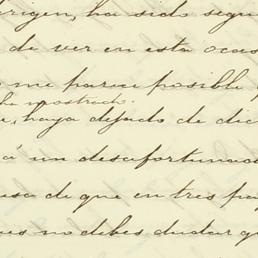 origen, ha sido segu
de ver en esta ocas
me parece posible
ha mostrado.
haya dejado de dic
á un desafortunad
usa de que en tres pa
no debes dudar q